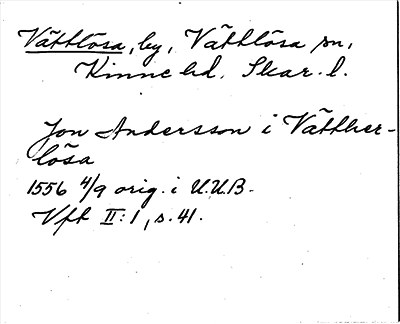 Vättlösa, by, Vättlösa sn,
Kinne hd. Skar. l.
Jon Andersson i Vätther-
lösa
1556 4/9 orig. i U.U.B.
Vft II:1, s. 41.